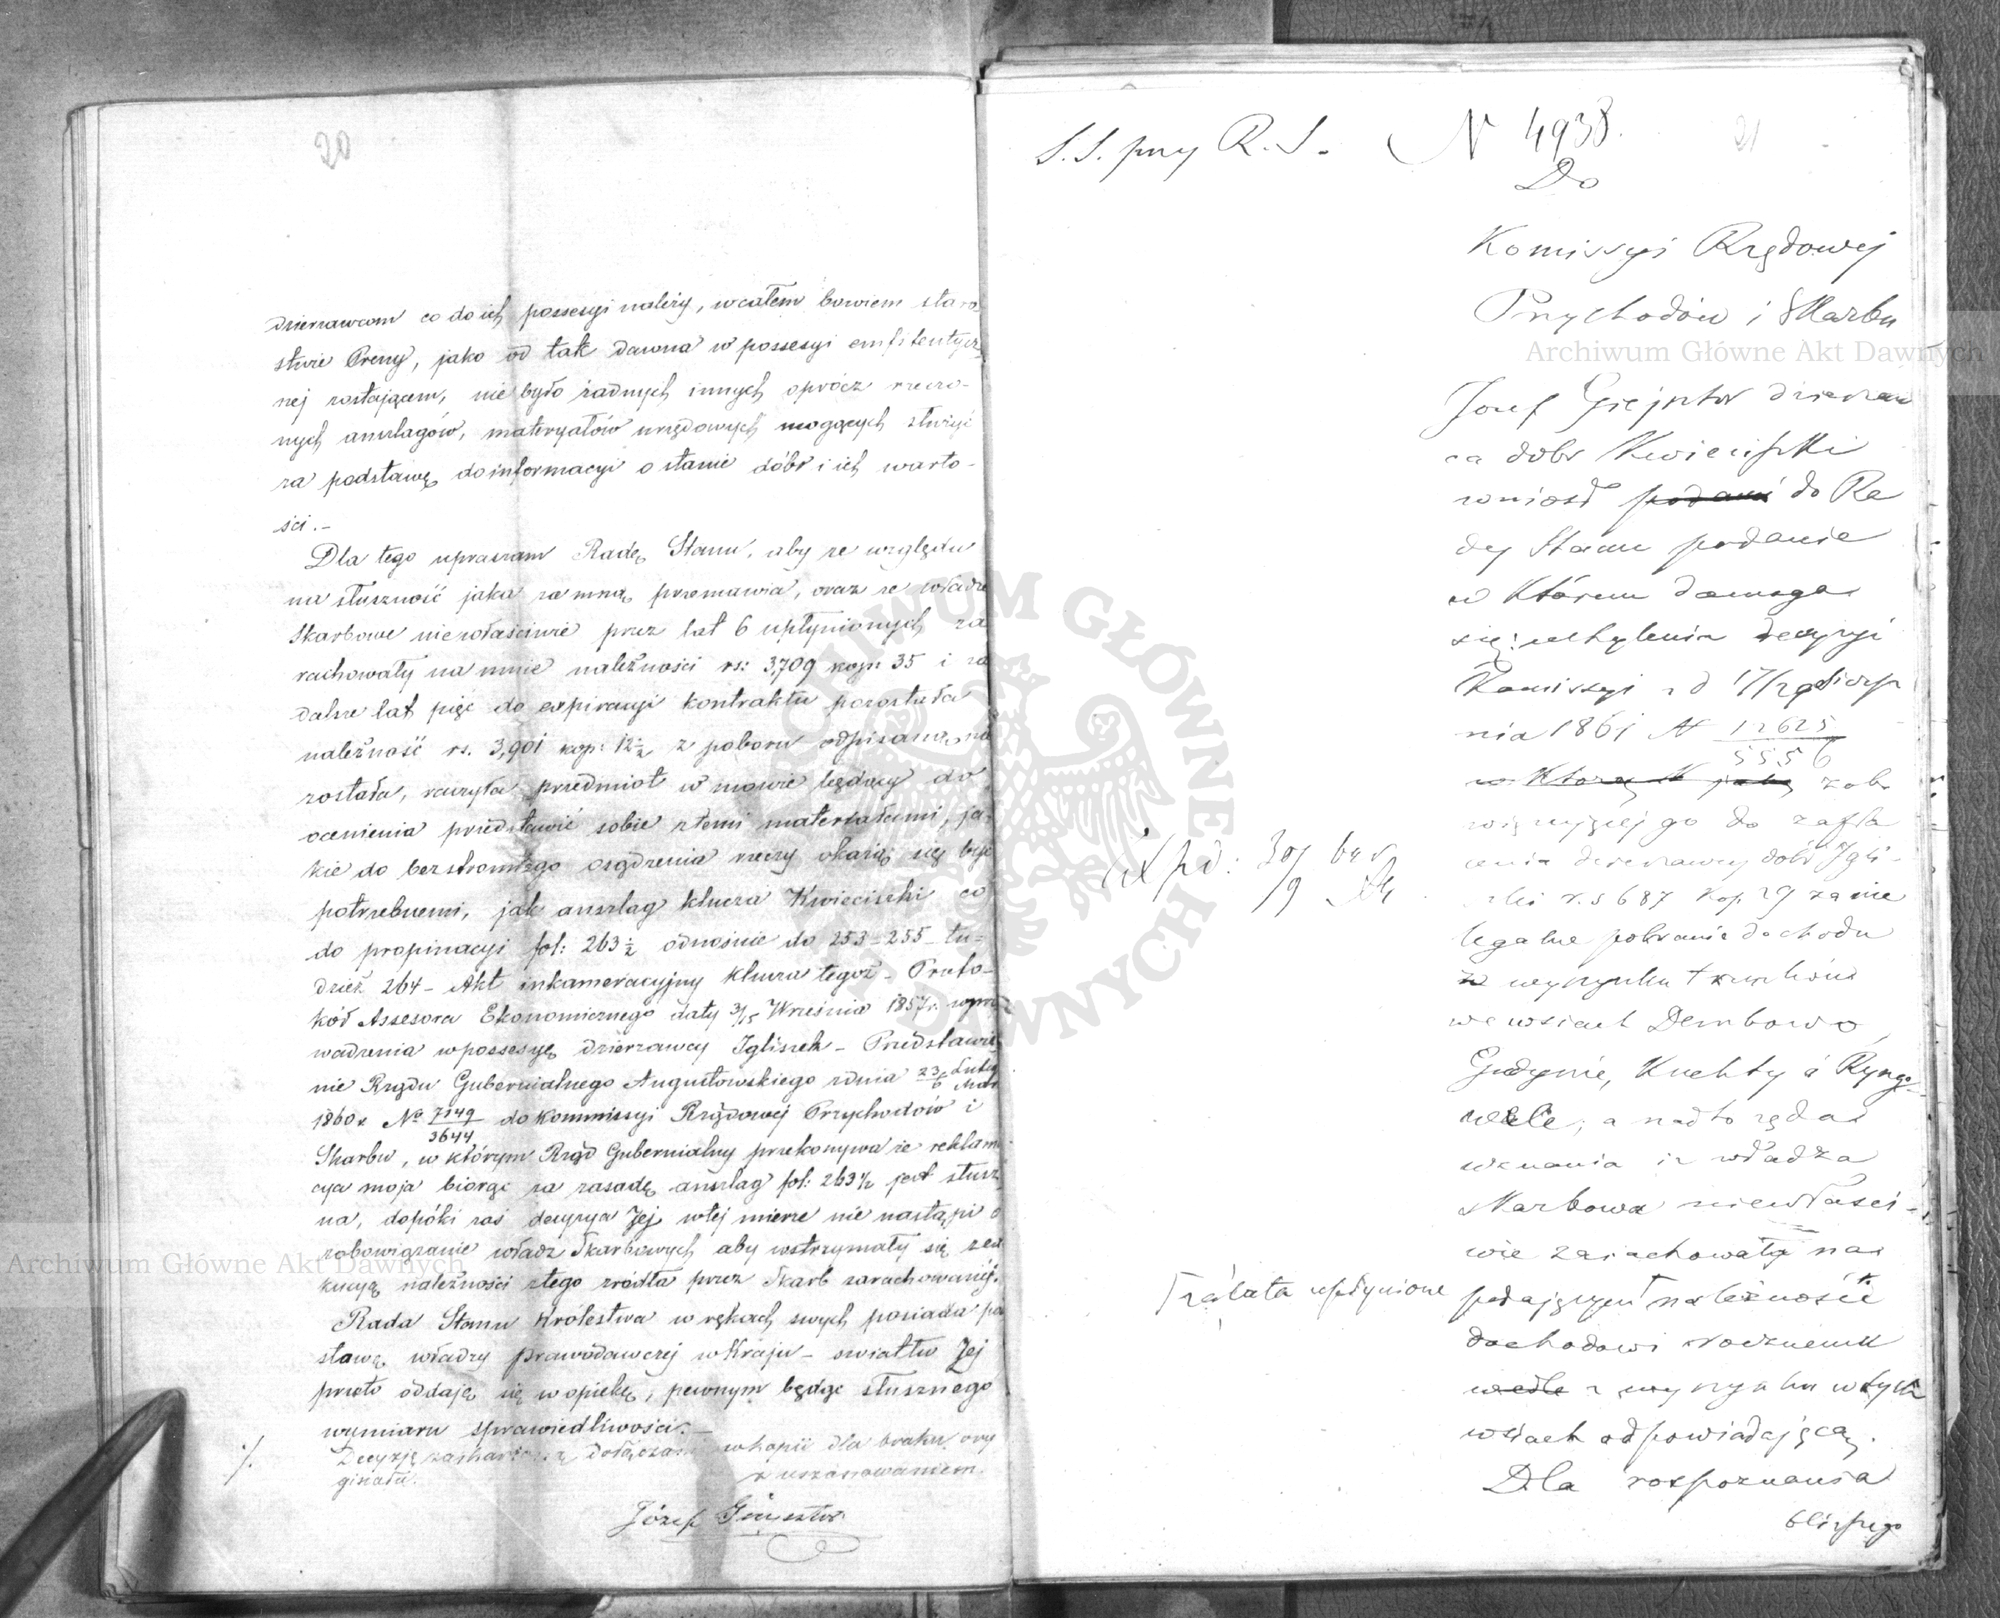 20
dzierzawcom co do ich possesyi należy, w całem bowiem staro-
stwie Preny, jako od tak dawna w possesyi emfiteutycz-
nej zostającem, nie było żadnych innych oprócz rzeczo-
nych anszlagów, materyałów urzędowych mogących służyć
za podstawę do informacyi o stanie dóbr i ich warto-
ści.-
Dla tego upraszam Radę Stanu, aby ze względu
na słuszność jaka za mną przemawia, oraz że władze
Skarbowe niewłaściwie przez lat 6 upłynionych za
rachowały na mnie należności rs: 3,709 kop: 35 i za
dalsze lat pięć do expiracyi kontraktu pozostała
należność rs. 3,901 kop: 12½ z poboru odpisaną
została, raczyła przedmiot w mowie będący do
ocenienia przedstawić sobie z temi materiałami, ja-
kie do bezstronnego osądzenia rzeczy okażą się być
potrzebnemi, jak anszlag klucza Kwieciszki co
do propinacyi fol: 263½ odnośnie do 253-255 tu-
dzież 264 - Akt inkameracyjny klucza tegoż - Proto-
kół Assesora Ekonomicznego daty 3/15 Września 1857 r. wpro
wadzenia w possesyę dzierzawcy Igliszek - Przedstawie
nie Rządu Gubernialnego Augustowskiego z dnia 23/6 Lutego/Mar
1860 r No 7149/3644 do Kommissyi Rządowej Przychodów i
Skarbu, w którym Rząd Gubernialny przekonywa że reklama
cya moja biorąc za zasadę anszlag fol: 263½ jest słusz
na, dopóki zaś decyzya Jej w tej mierze nie nastąpi o
zobowiązanie władz Skarbowych aby wstrzymały się z exe
kucyą należności z tego źródła przez Skarb zarachowanéj.
Rada Stanu Królestwa w rękach swych posiada po
stawę władzy prawodawczej w Kraju - światłu Jej
przeto oddaję się w opiekę, pewnym będąc słusznego
wymiaru sprawiedliwości.-
./. Decyzję zaskarżoną dołączam w kopii dla braku ory
ginału.
z uszanowaniem.
Józef Giejsztor
S. S. przy R. S. N 4938. 21
Do
Komissyi Rządowej
Przychodów i Skarbu
Jozef Giejsztor dzierzaw
ca dobr Kwieciszki
wniosł podanie do Ra
dy Stanu podanie
w którem domaga
się: uchylenia decyzyi
Komissyi z d 17/29 Sierp
nia 1861 N 12625/5556
w której zobo
wiązującej go do zapła
cenia dzierzawcy dobr Igli-
szki r.s 687 kop 29 za nie
legalne pobranie dochodu
z wyszynku trunków
we wsiach Dembowo,
Gudynie, Kuchty i Ryngo-
wele; a nadto żąda
uznania iż władza
Skarbowa niewłaści-
wie zarachowała na
podającym należność
dochodowi rocznemu
wedle z wyszynku w tych
wsiach odpowiadającą.
Dla rozpoznania
bliższego
Expd: 30/9 b r
za lata upłynione
Archiwum Główne Akt Dawnych
Archiwum Główne Akt Dawnych
ARCHIWUM GŁÓWNE AKT DAWNYCH